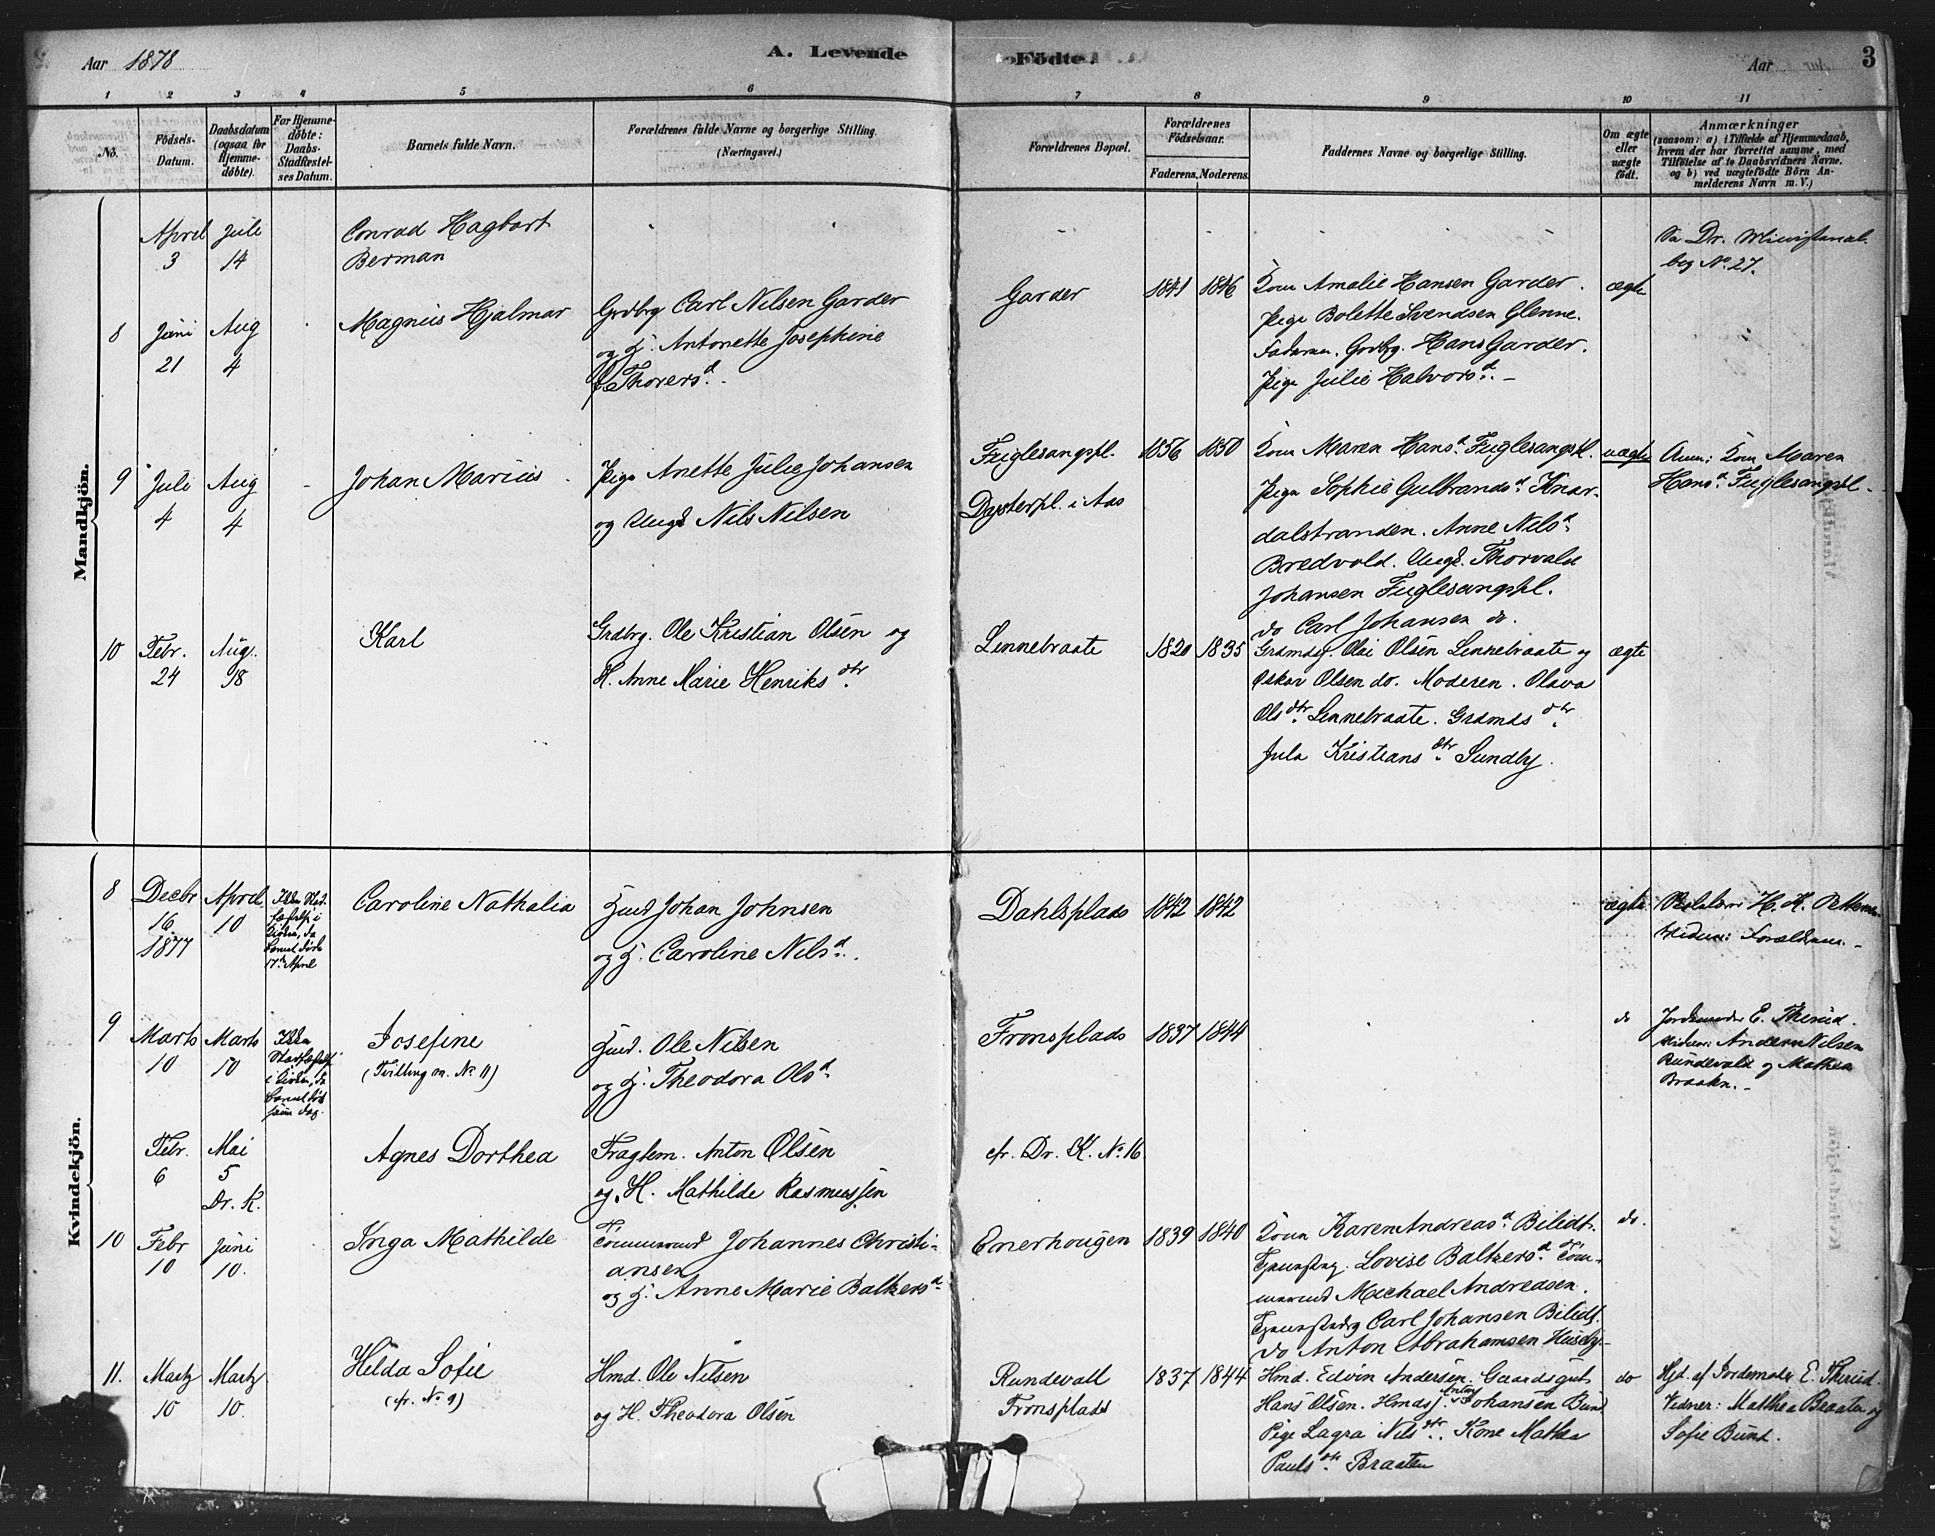 Aar 1878 A. Levende Födte. Aar 3
1 2 3 4 5 6 7 8 9 10 11
No.
Födsels-Datum.
Daabsdatum (ogsaa for Hjemme-döbte).
For Hjemme-döbte: Daabs-Stadfæstel-ses Datum.
Barnets fulde Navn.
Forældrenes fulde Navne og borgerlige Stilling. (Næringsvei.)
Forældrenes Bopæl.
Forældrenes Födselsaar. Faderens. Moderens.
Faddernes Navne og borgerlige Stilling.
Om ægte eller uægte födt.
Anmærkninger
(saasom: a) i Tilfælde af Hjemmedaab, hvem der har forrettet samme, med Tilföielse af to Daabsvidners Navne. og b) ved uægtefödte Börn An-melderens Navn m. V.)
Mandkjön.
April 3
Juli 14
Conrad Hagbart
Berman
Dr. Ministerial
bog No 27.
8
Juni 21
Aug 4
Magnus Hjalmar
Grdbrg Carl Nilsen Garder
og H. Antonette Josephine
Thorersd. -
Garder
1841 1846
Kone Amalie Hansen Garder.
Pige Bolette Svendsen Glenne.
Faderen. Grdbrg. Hans Garder.
Pige Julie Halvorsd. -
ægte
9
Juli 4
Aug 4
Johan Marius
Pige Anette Julie Johansen
og Ungk. Nils Nilsen
Fuglesangspl.
Dysterpl. i Aas
1856 1850
Kone Maren Hansd Fuglesangspl.
Pige Sophie Gulbrandsd. Knar-
dalstranden. Anne Nilsd.
Bredvold. Ungk. Thorvald
Johansen Fuglesangspl.
do Carl Johansen do.
uægte
Anm: Kone Maren
Hansd Fuglesangspl.
10
Febr. 24
Aug. 18
Karl
Grdbrg. Ole Kristian Olsen og
H. Anne Marie Henriksdtr.
Linnebraate
1820 1835
Grdmdsg. Olai Olsen Linnebraate og
Oskar Olsen do. Moderen. Olava
Olsdtr. Linnebraate. Grdmdsdtr.
Jula Kristiansdtr. Sundby.
ægte
Kvindekjön.
8
Decbr 16. 1877
April 10
Ikke Stad-
fæstet i
Kirken, da
Barnet døde
17de April
Caroline Nathalia
Hmd Johan Johnsen
og H. Caroline Nilsd.
Dahlsplads
1842 1842
ægte
H. H.
Vidner: Forældrene. -
9
Marts 10
Marts 10
Ikke
Stadfæstet
i Kirken, da
Barnet døde
samme Dag.
Josefine
(Tvilling m. No 11)
Hmd. Ole Nilsen
og H. Theodora Olsd
Fronsplads
1837 1844
do
Jordemoder E. Therud.
Vidner: Anders Nilsen
Rundevold og Mathea
Braaten. -
Febr. 6
Mai 5
Dr. K.
Agnes Dorthea
Fragtem. Anton Olsen
og H. Mathilde Rasmussen
cfr. Dr. K. No 16
10
Febr 10
Juni 10.
Inga Mathilde
Tømmermd Johannes Christi-
ansen
og H. Anne Marie Baltzersd
Enerhougen
1839 1840
Kone Karen Andreasd. Bilidt.
Tjenestpg. Lovise Baltzersd. Tøm-
mermd Michael Andreasen.
Tjenestedrg Carl Johansen Bilidt.
do Anton Abrahamsen Huseby. -
do.
11.
Marts 10
Marts 10.
Hilda Sofie
(cfr. No 9)
Hmd. Ole Nilsen
og H. Theodora Olsen
Rundevoll
Fronsplads
1837 1844
Hmd. Edvin Andersen. Gaardsgut
Hans Olsen. Hmdss. Anton Johansen Bund
Pige Lagra Nilsdtr. Kone Mathea
Paulsdtr. Braaten
do
Hjd. af Jordemoder E. Therud.
Vidner: Matthea Braaten og
Sofie Bund.